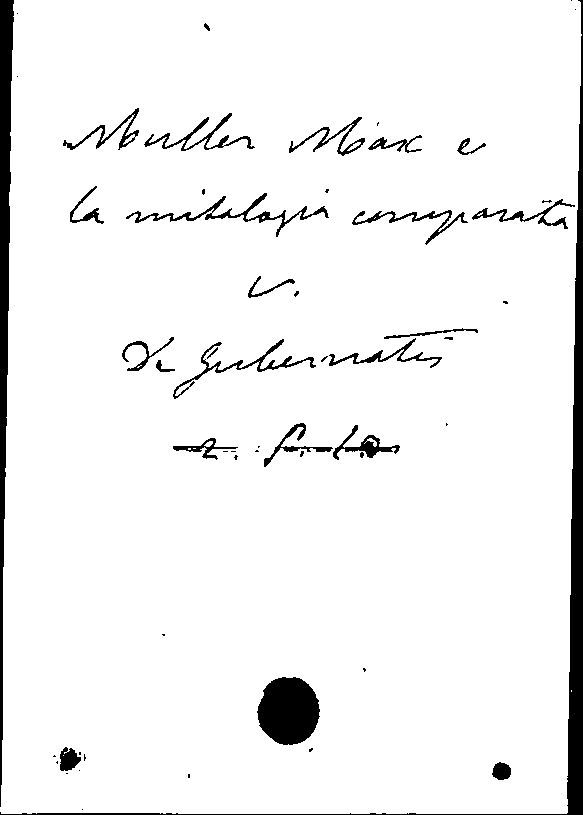 Muller Max e
la mitologia comparata
v.
De Gubernatis